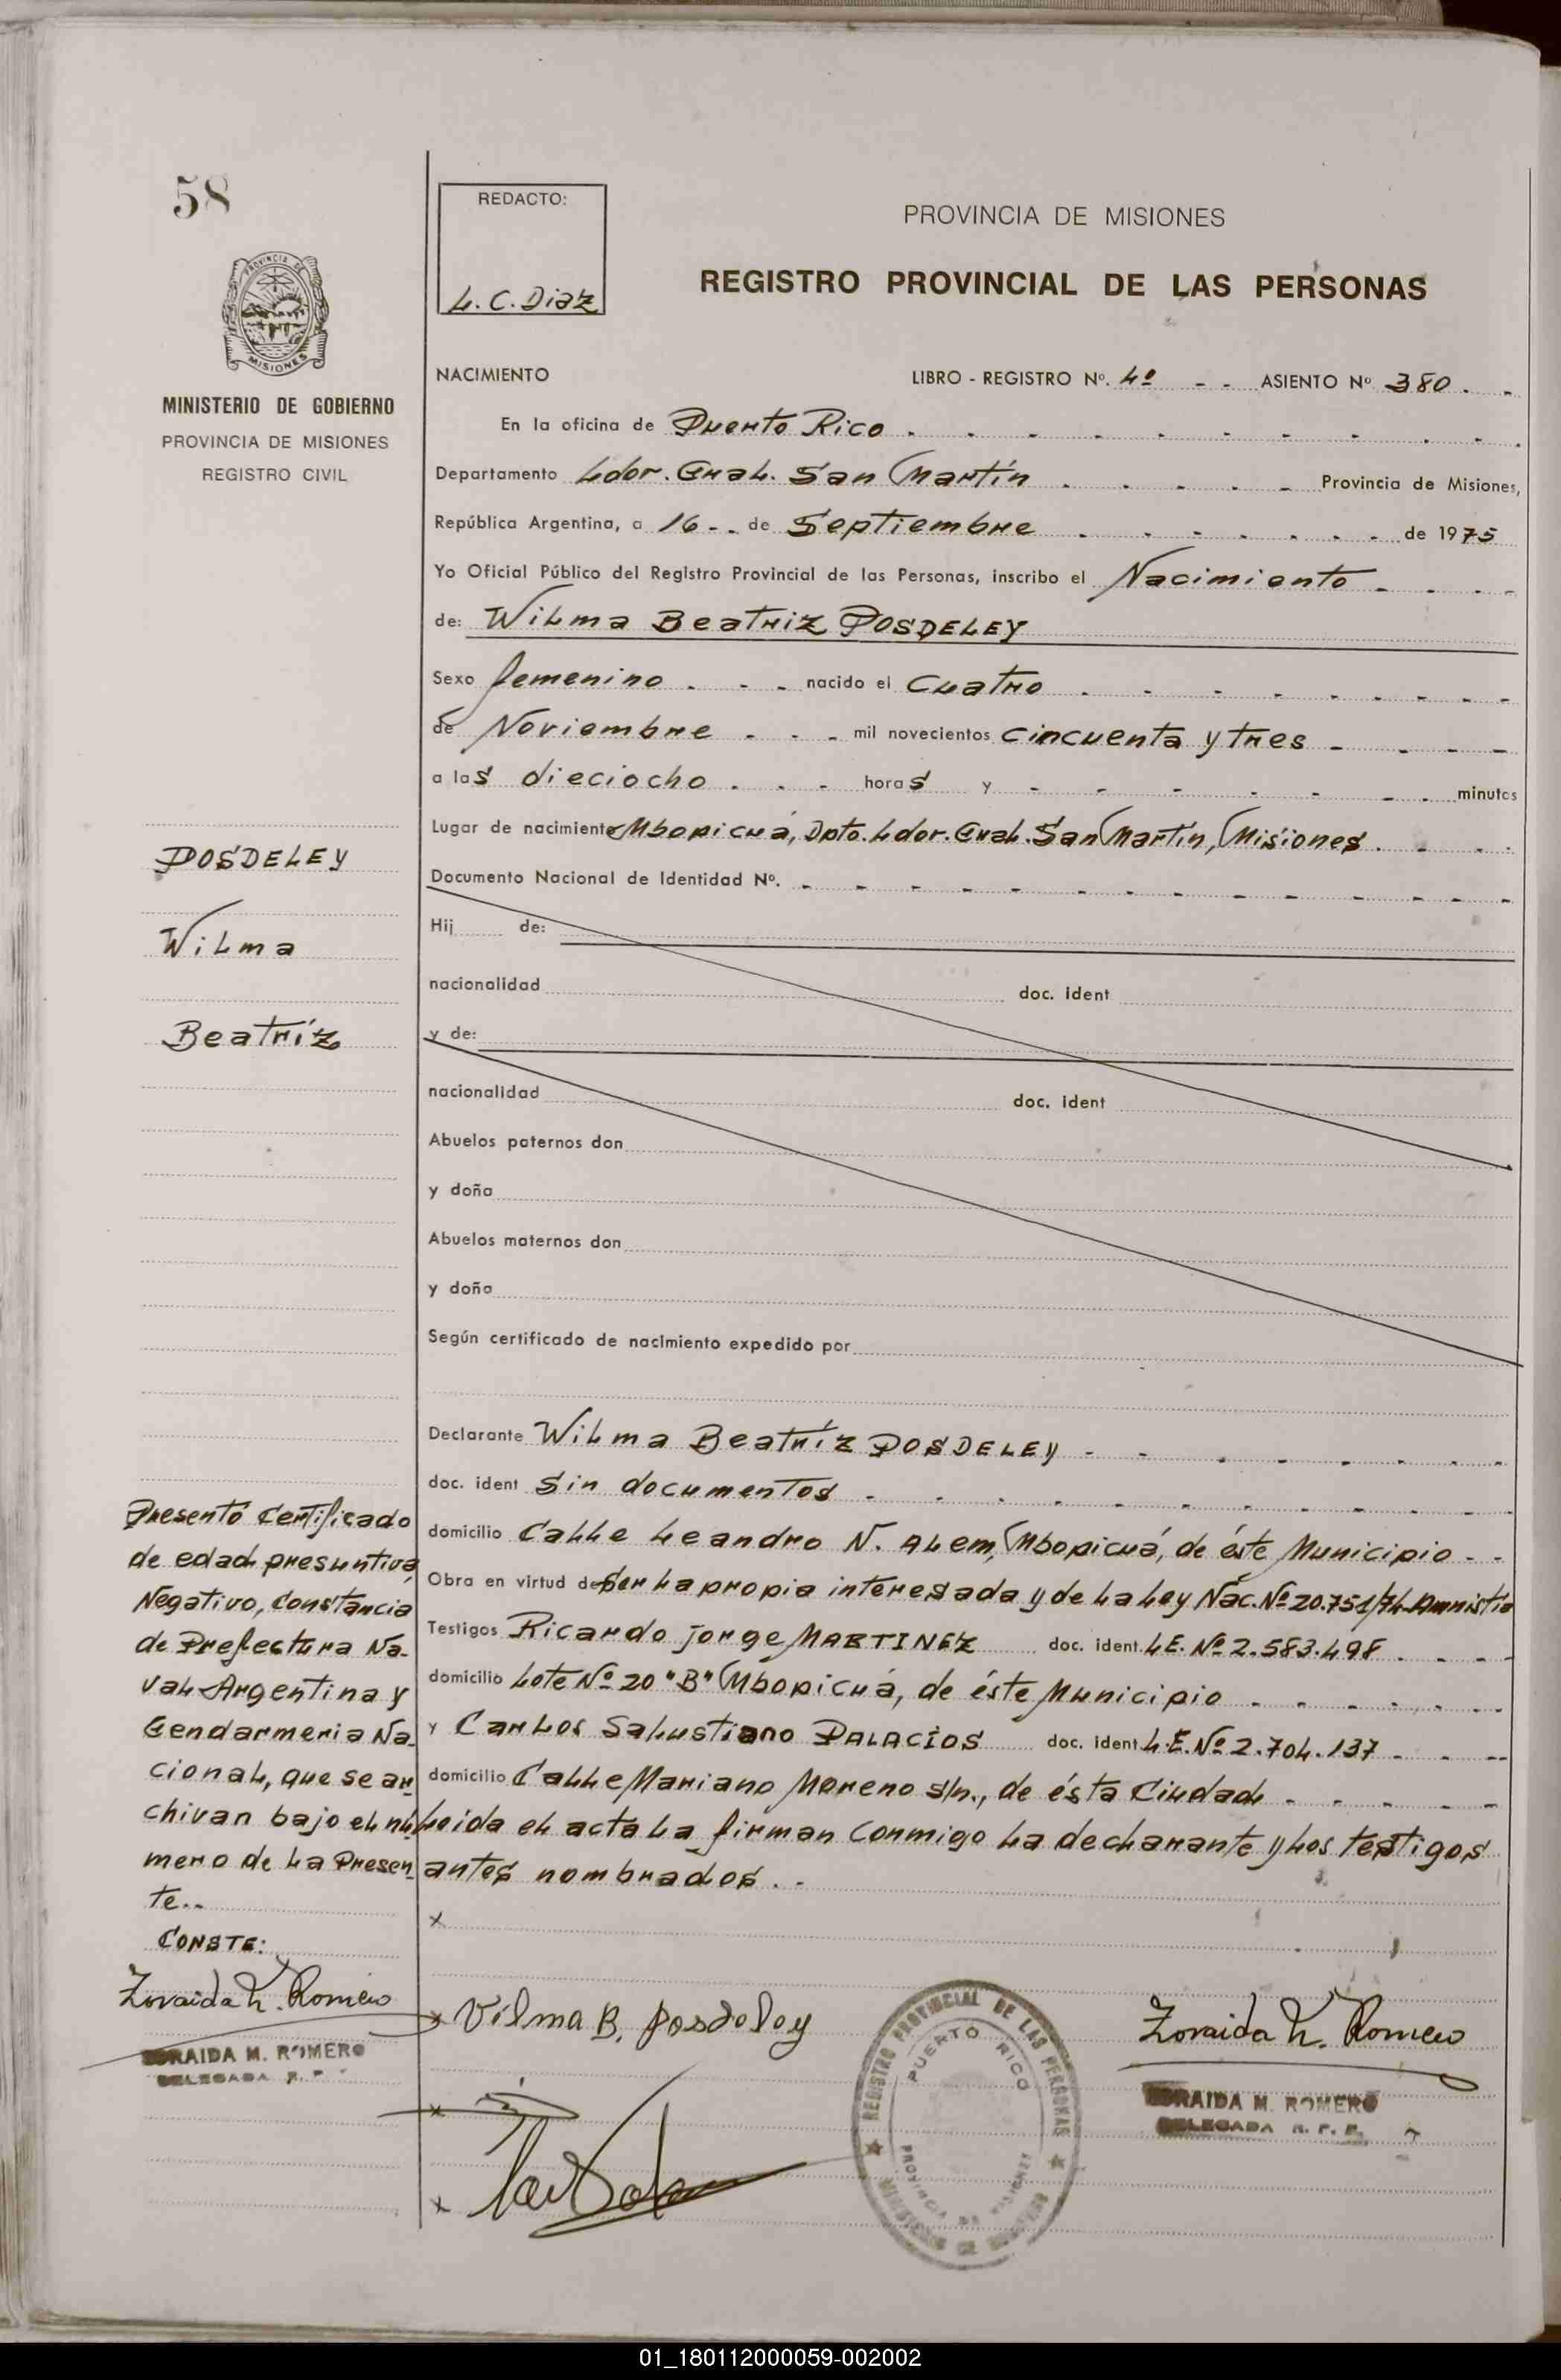 58
REDACTO:
L. C. Diaz
PROVINCIA DE MISIONES
REGISTRO PROVINCIAL DE LAS PERSONAS
PROVINCIA DE
MISIONES
MINISTERIO DE GOBIERNO
PROVINCIA DE MISIONES
REGISTRO CIVIL
NACIMIENTO LIBRO - REGISTRO Nº. 4º - - ASIENTO Nº 380. -
En la oficina de Puerto Rico
Departamento Ldor. Gral. San Martín Provincia de Misiones,
República Argentina, a 16 - - de Septiembre de 1975
Yo Oficial Público del Registro Provincial de las Personas, inscribo el Nacimiento
de: Wilma Beatriz POSDELEY
Sexo femenino nacido el Cuatro
de Noviembre mil novecientos cincuenta y tres
a las dieciocho horas y minutos
Lugar de nacimiento Mbopicuá, Dpto. Ldor. Gral. San Martín, Misiones.
Documento Nacional de Identidad Nº.
Hij de:
nacionalidad doc. ident
y de:
nacionalidad doc. ident
Abuelos paternos don
y doña
Abuelos maternos don
y doña
Según certificado de nacimiento expedido por
Declarante Wilma Beatríz POSDELEY
doc. ident Sin documentos
domicilio Calle Leandro N. Alem, Mbopicuá, de éste Municipio - -
Obra en virtud de Ser la propia interesada y de la Ley Nac. Nº 20.751/74-Amnistía
Testigos Ricardo Jorge MARTINEZ doc. ident. L.E. Nº 2.583.498
domicilio Lote Nº 20 "B" Mbopicuá, de éste Municipio
y Carlos Salustiano PALACIOS doc. ident. L.E. Nº 2.704.137
domicilio Calle Mariano Moreno s/n., de ésta Ciudad
Leida el acta la firman conmigo la declarante y los testigos
antes nombrados. -
POSDELEY
Wilma
Beatríz
Presentó Certificado
de edad presuntiva,
Negativo, Constancia
de Prefectura Na-
val Argentina y
Gendarmeria Na-
cional, que se ar-
chivan bajo el nú-
mero de la Presen-
te..
CONSTE:
Zoraida M. Romero
ZORAIDA M. ROMERO
DELEGADA R. P.
x
x Vilma B. Posdeley
x
x
REGISTRO PROVINCIAL DE LAS PERSONAS
PUERTO RICO
PROVINCIA DE MISIONES
Zoraida M. Romero
ZORAIDA M. ROMERO
DELEGADA R. P. P.
01_180112000059-002002